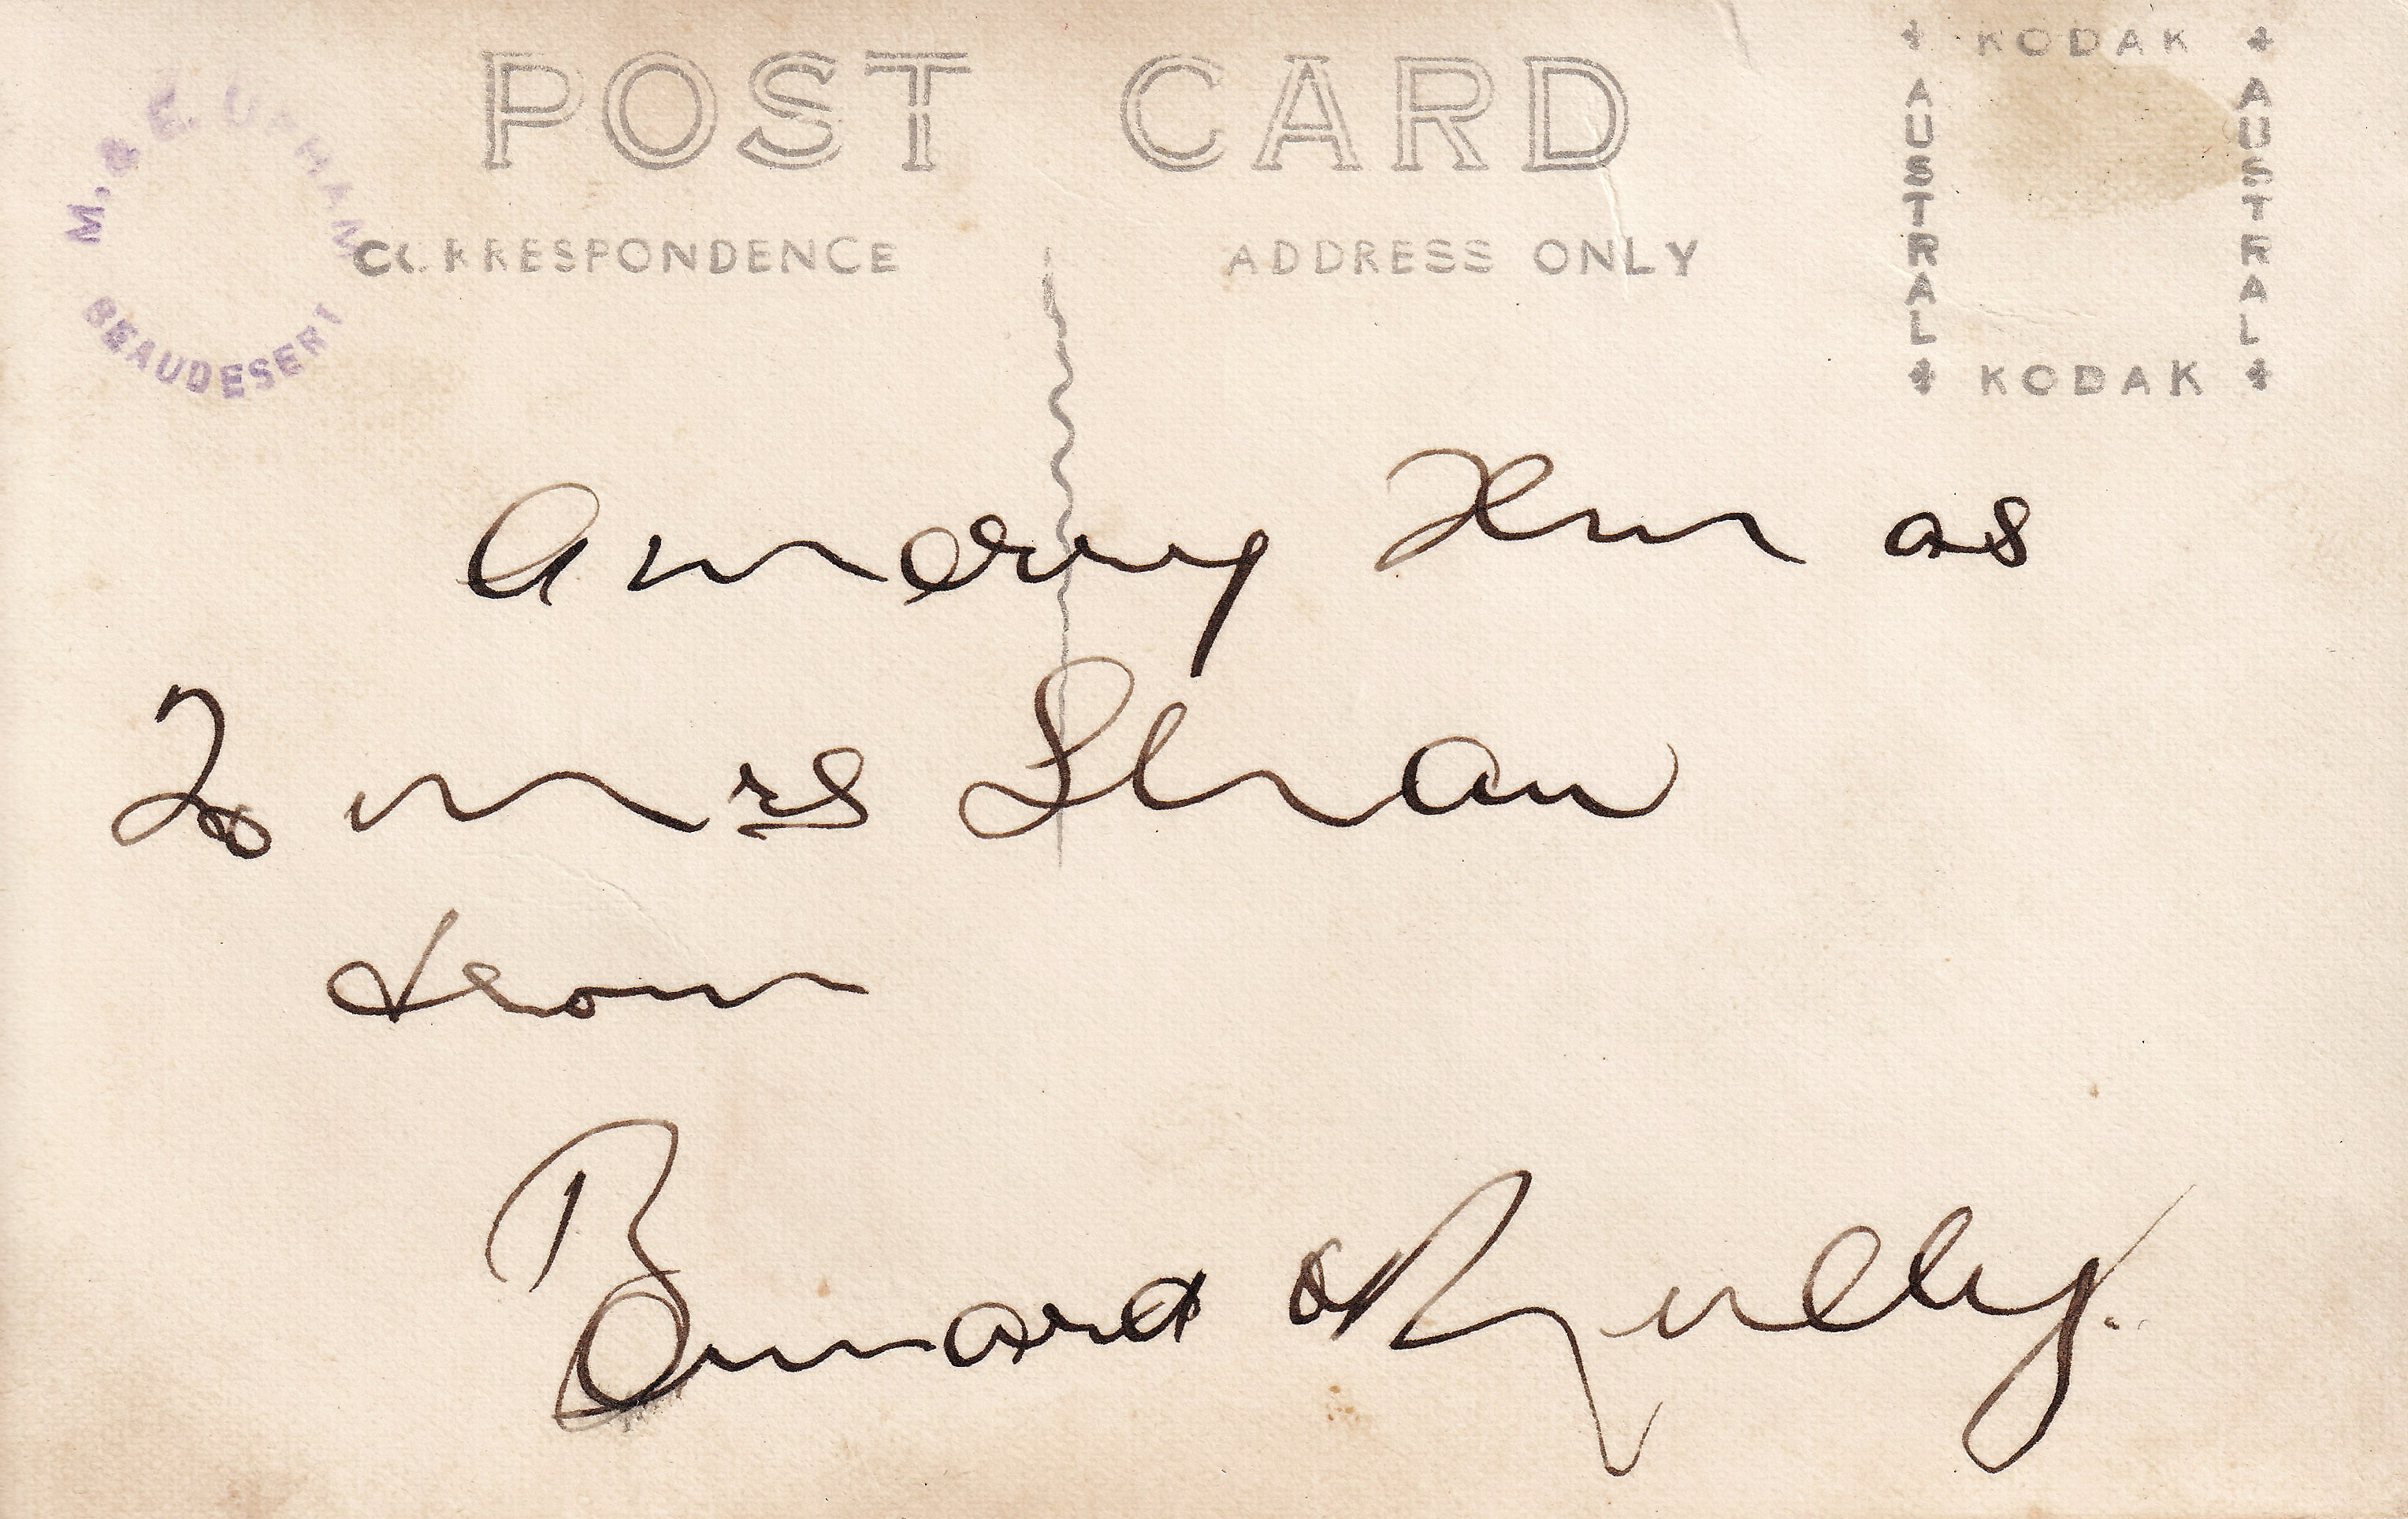 M. & E. UPHAM
BEAUDESERT
POST CARD
CORRESPONDENCE
ADDRESS ONLY
KODAK
AUSTRAL
AUSTRAL
KODAK
A merry Xmas
To Mrs Shaw
from
Bernard O'Reilly.